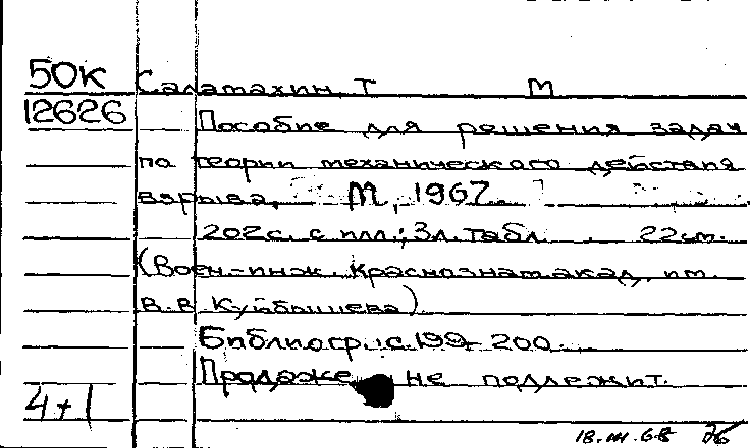 50К Салатахин, Т М
12626 Пособие для решения задач
по теории механического действия
взрыва, М, 1967.
202с. с илл.; 3л. табл. 22см.
(Воен-инж. краснознам акад. им.
В.В Куйбышева)
Библиогр.: с. 199-200.
Продаже не подлежит.
4+1
18.III.68